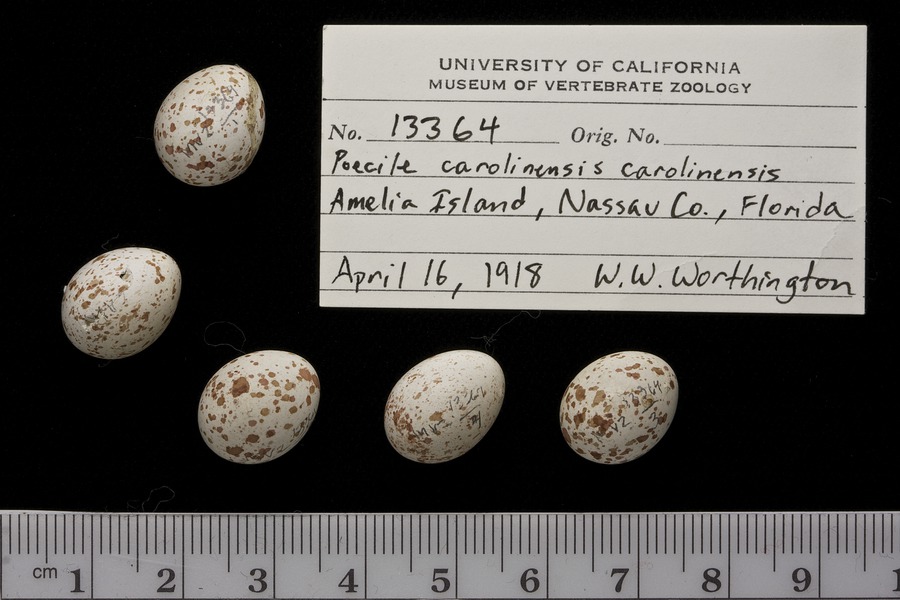 UNIVERSITY OF CALIFORNIA
MUSEUM OF VERTEBRATE ZOOLOGY
No. 13364 Orig. No.
Poecile carolinensis carolinensis
Amelia Island, Nassau Co., Florida
April 16, 1918 W.W. Worthington
13364
cm 1 2 3 4 5 6 7 8 9 1